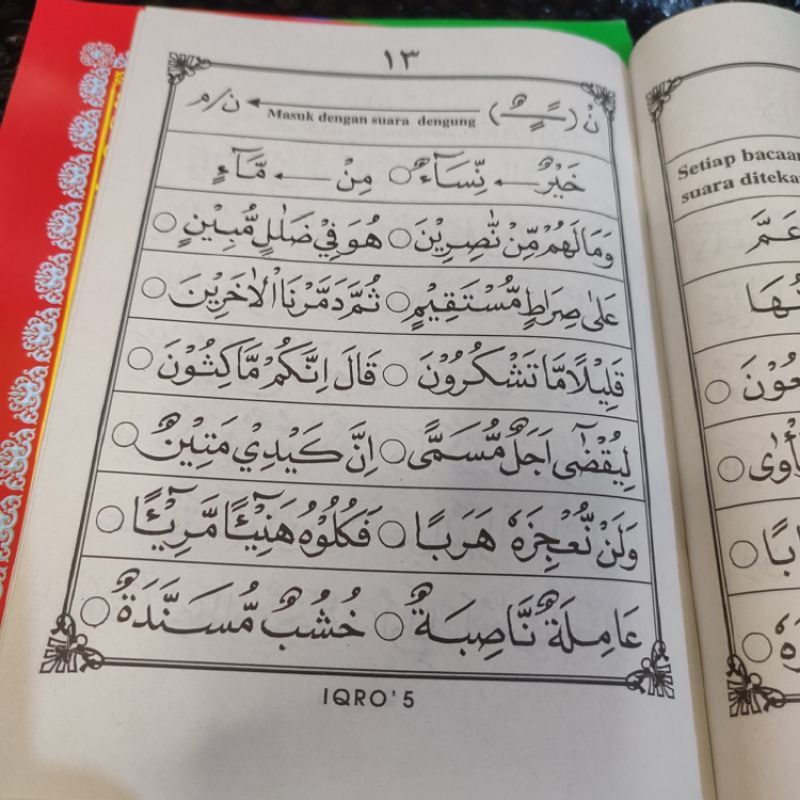 ١٣
نْ (ــًــٍــٌ) Masuk dengan suara dengung ن/م
خَيْرٌ نِّسَآءٌ ○ مِنْ مَّآءٍ
وَمَالَهُمْ مِّنْ نّٰصِرِيْنَ ○ هُوَ فِيْ ضَلٰلٍ مُّبِيْنٍ ○
عَلٰى صِرَاطٍ مُّسْتَقِيْمٍ ○ ثُمَّ دَمَّرْنَا الْاٰخَرِيْنَ ○
قَلِيْلًا مَّا تَشْكُرُوْنَ ○ قَالَ اِنَّكُمْ مَّاكِثُوْنَ ○
لِيُقْضٰٓى اَجَلٌ مُّسَمًّى ○ اِنَّ كَيْدِيْ مَتِيْنٌ ○
وَلَنْ نُّعْجِزَهٗ هَرَبًا ○ فَكُلُوْهُ هَنِيْٓئًا مَّرِيْٓئًا ○
عَامِلَةٌ نَّاصِبَةٌ ○ خُشُبٌ مُّسَنَّدَةٌ ○
IQRO'5
Setiap bacaan
suara diteka
عَمَّ